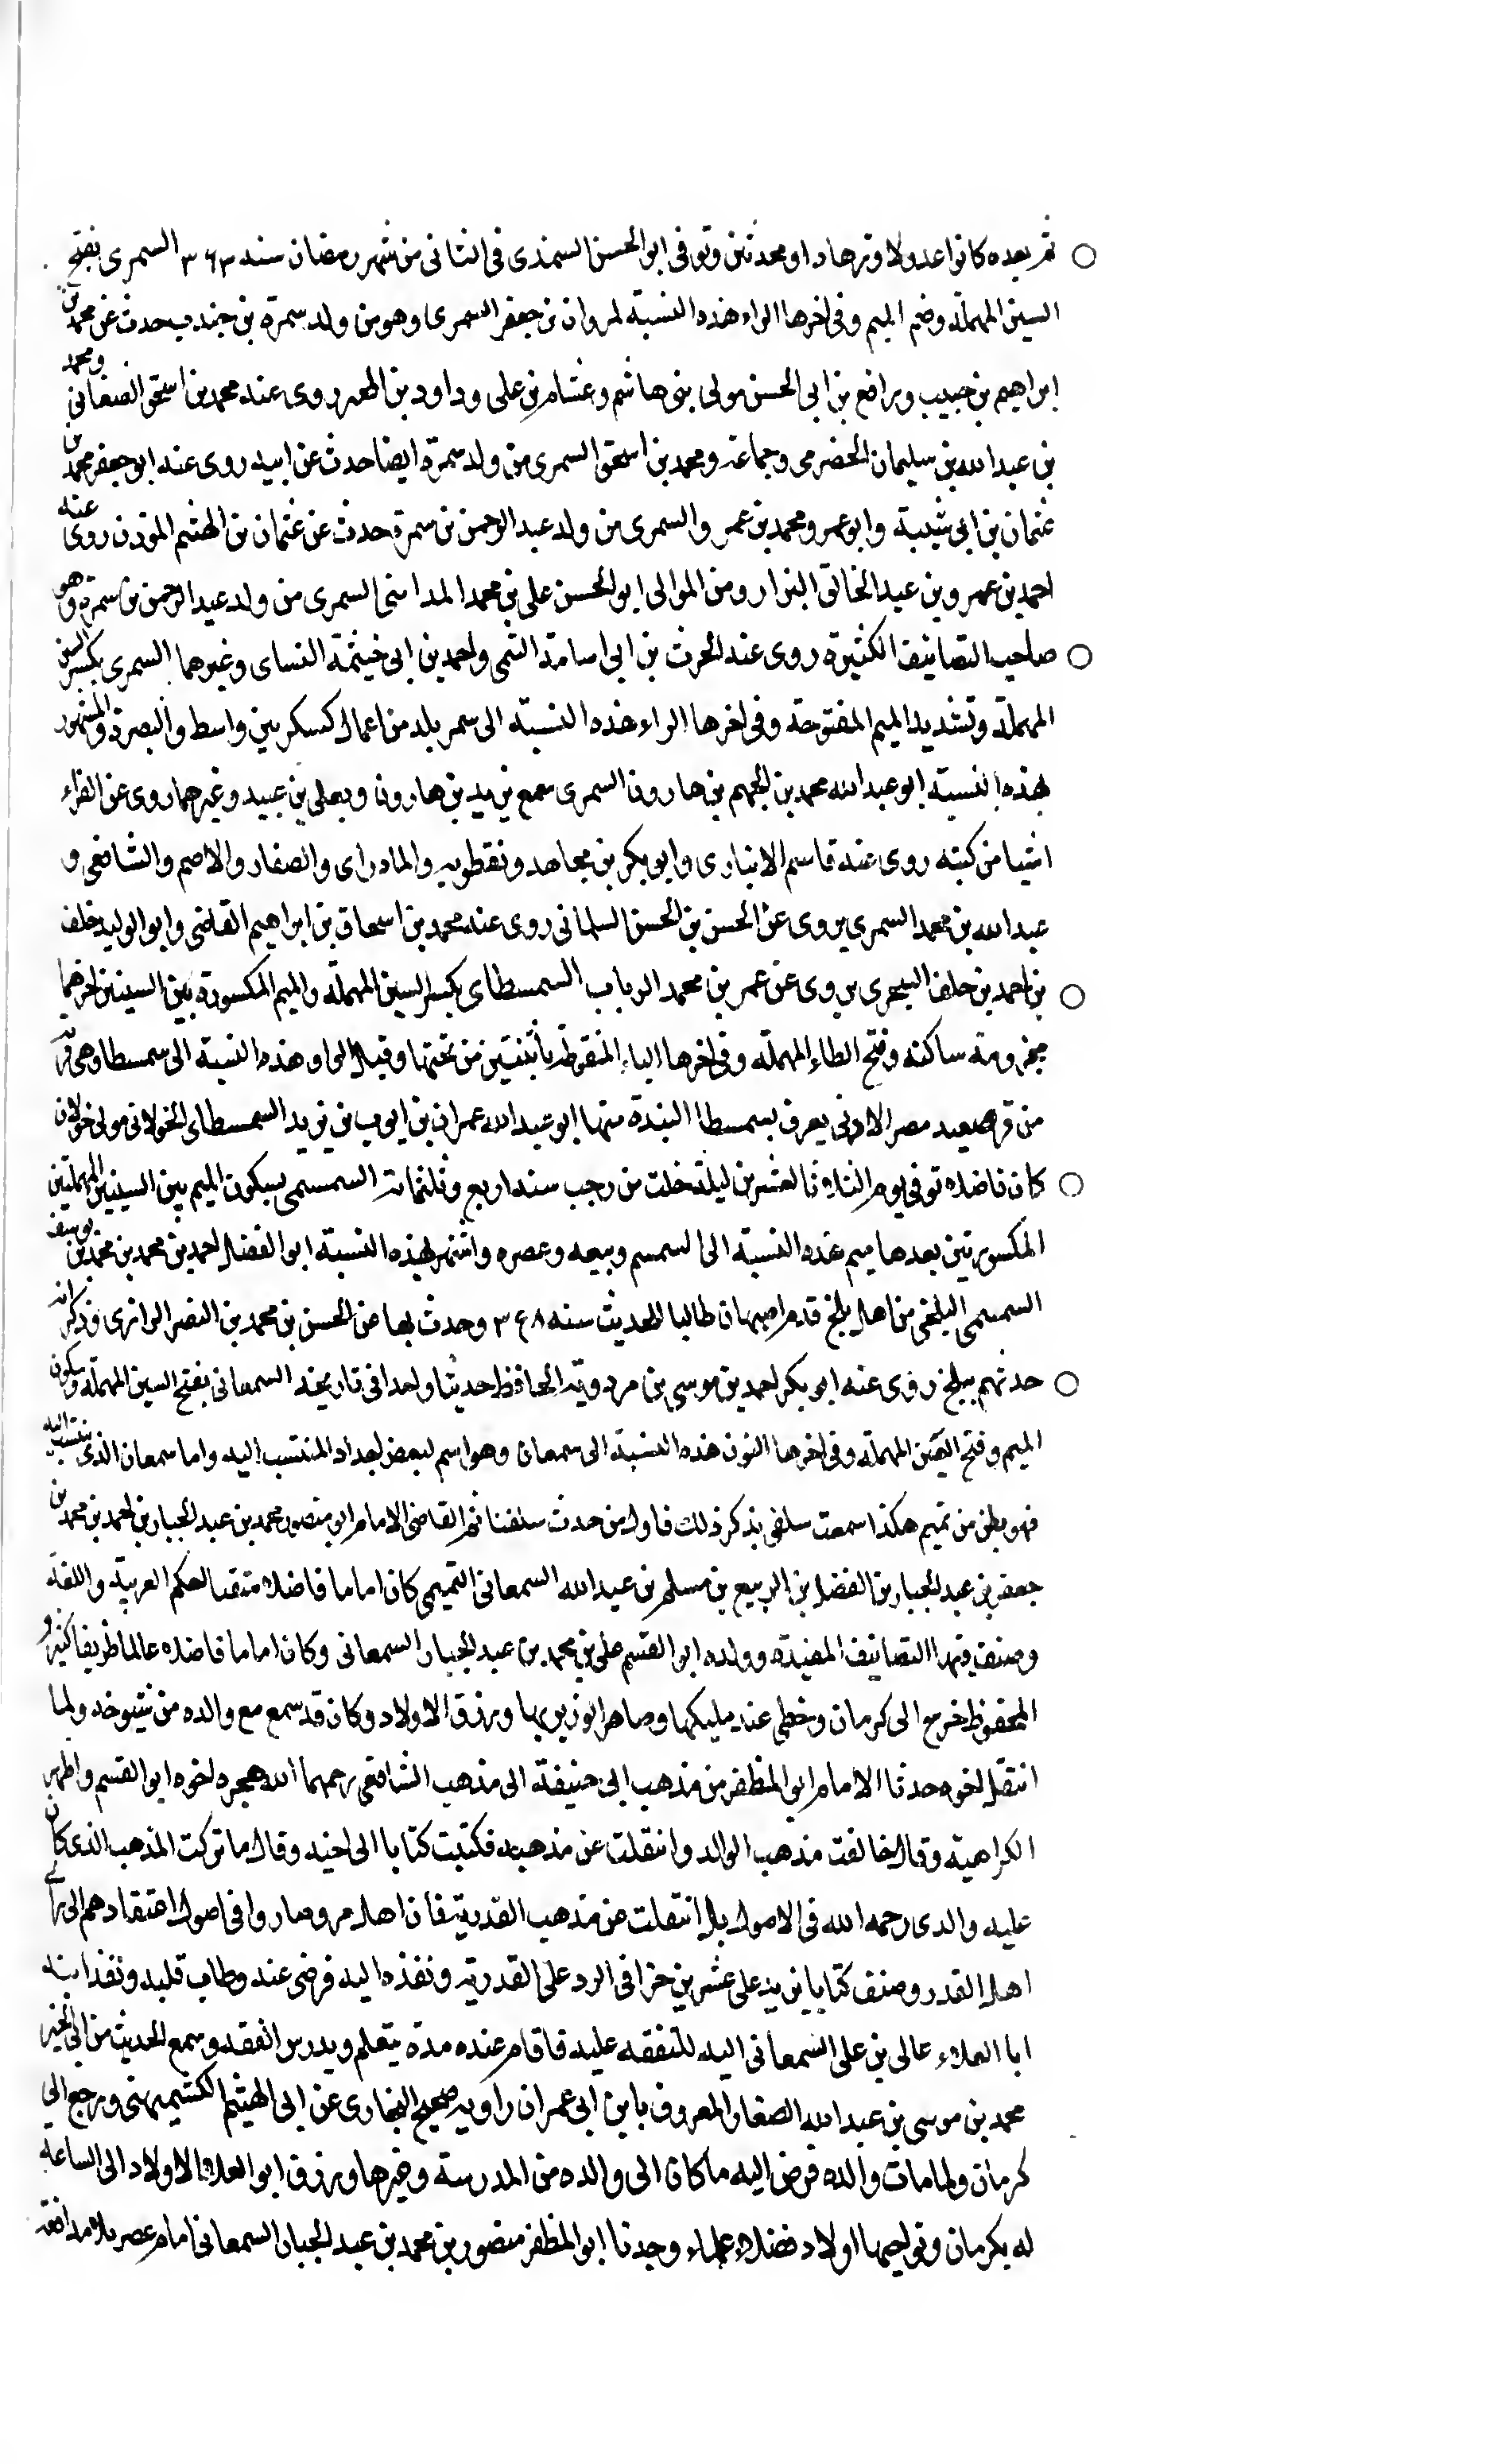 ثم بعده كانوا عدولا وزهادا ومحدثين وتوفى ابو الحسن السمذى فى الثانى من شهر رمضان سنه ٣٦٣ السمرى بفتح
السين المهملة وضم الميم وفى اخرها الراء هذه النسبة لمروان بن جعفر السمرى وهو من ولد سمرة بن جندب حدث عن محمد بن
ابراهيم بن خبيب ورافع بن ابى الحسن مولى بنى هاشم وعثام بن على وداود بن روى عنه محمد بن اسحق الصغانى ومحمد
بن عبد الله بن سليمان الحضرمى وجماعة ومحمد بن اسحق السمرى من ولد سمرة ايضا حدث عن ابيه روى عنه ابو جعفر محمد بن
عثمان بن ابى شيبة وابو عمرو محمد بن عمر والسمرى من ولد عبد الرحمن بن سمرة حدث عن عثمان بن الهيثم المؤذن روى عنه
احمد بن عمرو بن عبد الخالق البزار ومن الموالى ابو الحسن على بن محمد المداينى السمرى من ولد عبد الرحمن بن سمرة وهو
صاحب التصانيف الكثيرة روى عنه الحرث بن ابى اسامة التمى واحمد بن ابى خيثمة النساى وغيرهما السمرى بكسر السين
المهملة وتشديد الميم المفتوحة وفى اخرها الراء هذه النسبة الى سمر بلد من اعمال كسكر بين واسط والبصرة والمشهور
بهذه النسبة ابو عبد الله محمد بن الجهم بن هارون السمرى سمع يزيد بن هارون ويعلى بن عبيد وغيرهما روى عن الفراء
اشيا من كتبه روى عنه قاسم الانبارى وابو بكر بن مجاهد ونفطويه والمادراى والصفار والاصم والشافعى و
عبد الله بن محمد السمرى يروى عن الحسن بن الحسن السلمانى روى عنه محمد بن اسحاق بن ابراهيم القاضى وابو الوليد خلف
بن احمد بن خلف السجزى يروى عن عمر بن محمد الرباب السمسطاى بكسر السين المهملة والميم المكسورة بين السينين اخرهما
مجزومة ساكنه وفتح الطاء المهملة وفى اخرها الياء المنقوطة باثنتين من تحتها وقيل الواو هذه النسبة الى سمسطا وهى قرية
من قر صعيد مصر الادنى يعرف بسمسطا البندة منها ابو عبد الله عمران بن ايوب بن يزيد السمسطاى الخولانى مولى خولان
كان فاضلا توفى يوم الثلاثا لعشرين ليلة خلت من رجب سنه اربع وثلثماية السمسمى بسكون الميم بين السينين المهملتين
المكسورتين بعدها ميم هذه النسبة الى السمسم وبيعه وعصره واشتهر بهذه النسبة ابو الفضل احمد بن محمد بن محمد بن يوسف
السمسمى البلخى من اهل بلخ قدم اصبهان طالبا للحديث سنه ٣٤٨ وحدث بها عن الحسن بن محمد بن النضر الرازى وذكر انه
حدثهم ببلخ روى عنه ابو بكر احمد بن موسى بن مردويه الحافظ حديثا واحدا فى تاريخه السمعانى بفتح السين المهملة وسكون
الميم وفتح العين المهملة وفى اخرها النون هذه النسبة الى سمعان وهو اسم لبعض اجداد المنتسب اليه واما سمعان الذى ينتسب اليه
فهو بطن من تميم هكذا سمعت سلفى يذكر ذلك فاول من حدث سلفنا ثم القاضى الامام ابو منصور محمد بن عبد الجبار بن احمد بن محمد بن
جعفر بن عبد الجبار بن الفضل بن الربيع بن مسلم بن عبد الله السمعانى التميمى كان اماما فاضلا متقنا احكم العربية واللغة
وصنف فيها التصانيف المفيدة وولده ابو القسم على بن محمد بن عبد الجبار السمعانى وكان اماما فاضلا عالما ظريفا كثير و
المحفوظ خرج الى كرمان وخطى عند مليكها وصاهر الوزير بها ورزق الاولاد وكان قد سمع مع والده من شيوخه ولما
انتقل اخوه جدنا الامام ابو المظفر من مذهب ابى حنيفة الى مذهب الشافعى رحمهما الله هجره اخوه ابو القسم واظهر
الكراهية وقال خالفت مذهب الوالد وانتقلت عن مذهبه فكتبت كتابا الى اخيه وقال ما تركت المذهب الذى كان
عليه والدى رحمه الله فى الاصول بل انتقلت عن مذهب القدرية فان اهل مرو صاروا فى اصول اعتقادهم الى راى
اهل القدر وصنف كتابا يزيد على عشرين جزا فى الرد على القدرية ونفذه اليه فرضى عنه وطاب قلبه ونفذ ابنه
ابا العلاء عالى بن على السمعانى اليه للتفقه عليه فاقام عنده مدة يتعلم ويدرس الفقه وسمع الحديث من ابى الخير
محمد بن موسى بن عبد الله الصفار المعروف بابن ابى عمران راويه صحيح البخارى عن ابى الهيثم الكشميهنى ورجع الى
كرمان ولما مات والده فوض اليه ما كان الى والده من المدرسة وغيرها ورزق ابو العلا الاولاد الى الساعة
له بكرمان ونواحيها اولاد فضلاء علماء وجدنا ابو المظفر منصور بن محمد بن عبد الجبار السمعانى امام عصر بلا مدافعة